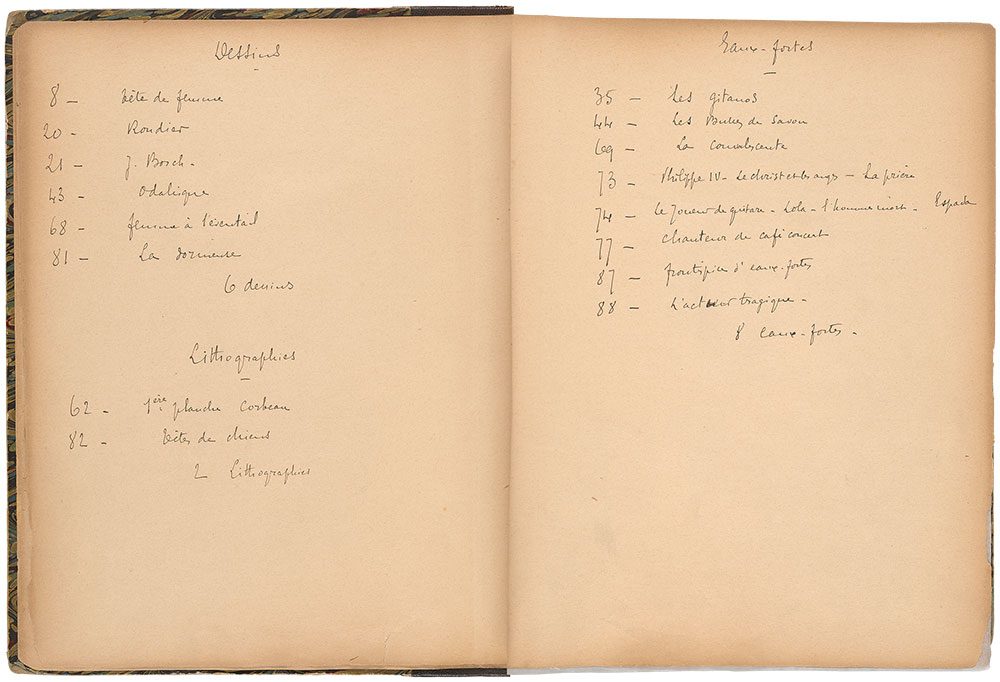 Dessins
8 - tête de femme
20 - Roudier
21 - J. Bosch -
43 - Odalisque
68 - femme à l'éventail
81 - La dormeuse
6 dessins
Lithographies
62 - 1ère planche Corbeau
82 - têtes de chiens
2 Lithographies
Eaux-fortes
35 - Les gitanos
44 - Les Bulles de Savon
69 - La convalescente
73 - Philippe IV - Le christ et les anges - La prière
74 - Le Joueur de guitare - Lola - l'homme mort - Espada
77 - Chanteur de café concert
87 - frontispice d'eaux-fortes
88 - L'acteur tragique -
8 eaux-fortes -